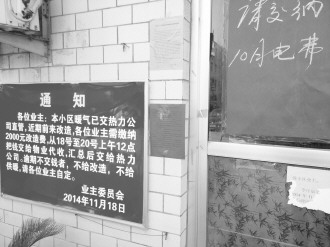 通 知
各位业主：本小区暖气已交热力公
司直管，近期前来改造，各位业主需缴纳
2000元改造费，从18号至20号上午12点
把钱交给物业代收，汇总后交给热力
公司。逾期不交钱者，不给改造，不给
供暖，请各位业主自定。
业主委员会
2014年11月18日
请交纳
10月电费